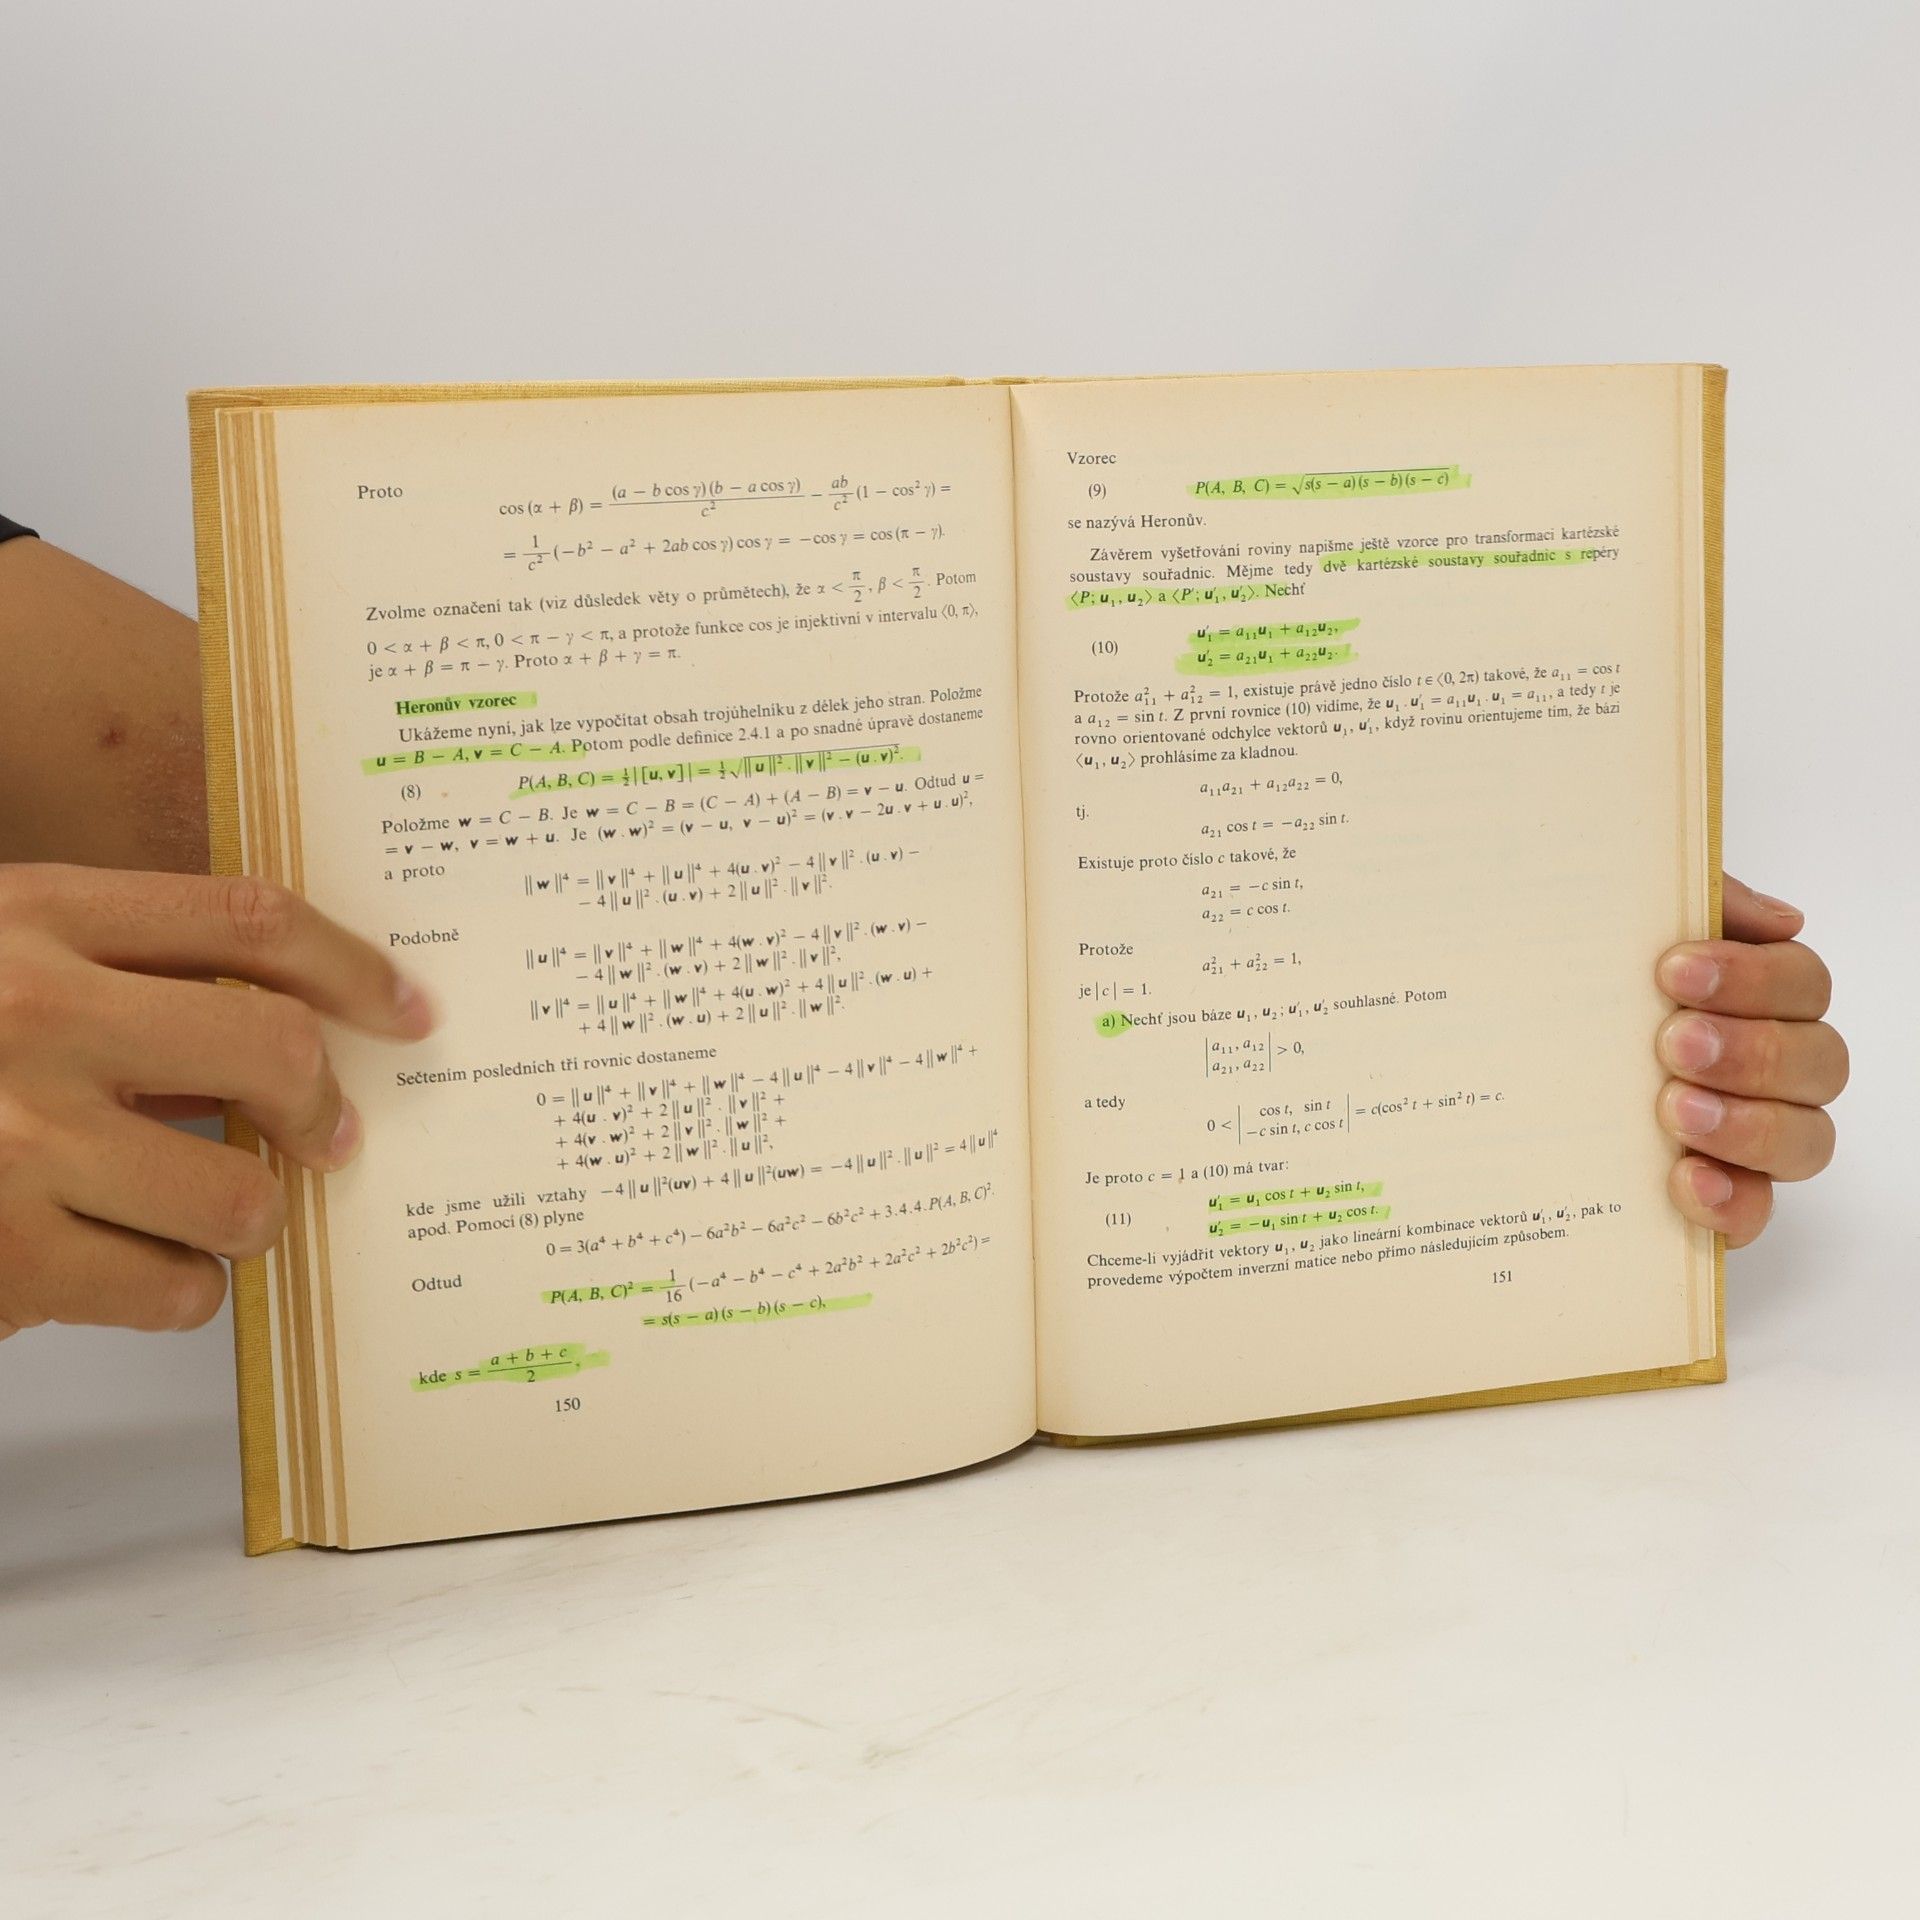 Proto
cos (α + β) = (a − b cos γ)(b − a cos γ) / c² − ab / c² (1 − cos² γ) =
= 1/c² (−b² − a² + 2ab cos γ) cos γ = −cos γ = cos (π − γ).
Zvolme označení tak (viz důsledek věty o průmětech), že α < π/2, β < π/2. Potom
0 < α + β < π, 0 < π − γ < π, a protože funkce cos je injektivní v intervalu ⟨0, π⟩,
je α + β = π − γ. Proto α + β + γ = π.
Heronův vzorec
Ukážeme nyní, jak lze vypočítat obsah trojúhelníku z délek jeho stran. Položme
u = B − A, v = C − A. Potom podle definice 2.4.1 a po snadné úpravě dostaneme
(8) P(A, B, C) = ½ |[u, v]| = ½ √‖u‖² . ‖v‖² − (u . v)².
Položme w = C − B. Je w = C − B = (C − A) + (A − B) = v − u. Odtud u =
= v − w, v = w + u. Je (w . w)² = (v − u, v − u)² = (v . v − 2u . v + u . u)²,
a proto
‖w‖⁴ = ‖v‖⁴ + ‖u‖⁴ + 4(u . v)² − 4‖v‖² . (u . v) −
− 4‖u‖² . (u . v) + 2‖u‖² . ‖v‖².
Podobně
‖u‖⁴ = ‖v‖⁴ + ‖w‖⁴ + 4(w . v)² − 4‖v‖² . (w . v) −
− 4‖w‖² . (w . v) + 2‖w‖² . ‖v‖²,
‖v‖⁴ = ‖u‖⁴ + ‖w‖⁴ + 4(u . w)² + 4‖u‖² . (w . u) +
+ 4‖w‖² . (w . u) + 2‖u‖² . ‖w‖².
Sečtením posledních tří rovnic dostaneme
0 = ‖u‖⁴ + ‖v‖⁴ + ‖w‖⁴ − 4‖u‖⁴ − 4‖v‖⁴ − 4‖w‖⁴ +
+ 4(u . v)² + 2‖u‖² . ‖v‖² +
+ 4(v . w)² + 2‖v‖² . ‖w‖² +
+ 4(w . u)² + 2‖w‖² . ‖u‖²,
kde jsme užili vztahy −4‖u‖²(uv) + 4‖u‖²(uw) = −4‖u‖² . ‖u‖² = 4‖u‖⁴
apod. Pomocí (8) plyne
0 = 3(a⁴ + b⁴ + c⁴) − 6a²b² − 6a²c² − 6b²c² + 3.4.4.P(A, B, C)².
Odtud
P(A, B, C)² = 1/16 (−a⁴ − b⁴ − c⁴ + 2a²b² + 2a²c² + 2b²c²) =
= s(s − a)(s − b)(s − c),
kde s = a + b + c / 2,
150
Vzorec
(9) P(A, B, C) = √s(s − a)(s − b)(s − c)
se nazývá Heronův.
Závěrem vyšetřování roviny napišme ještě vzorce pro transformaci kartézské
soustavy souřadnic. Mějme tedy dvě kartézské soustavy souřadnic s repéry
⟨P; u₁, u₂⟩ a ⟨P′; u′₁, u′₂⟩. Nechť
u′₁ = a₁₁u₁ + a₁₂u₂,
(10)
u′₂ = a₂₁u₁ + a₂₂u₂.
Protože a²₁₁ + a²₁₂ = 1, existuje právě jedno číslo t ∈ ⟨0, 2π) takové, že a₁₁ = cos t
a a₁₂ = sin t. Z první rovnice (10) vidíme, že u₁ . u′₁ = a₁₁u₁ . u₁ = a₁₁, a tedy t je
rovno orientované odchylce vektorů u₁, u′₁, když rovinu orientujeme tím, že bázi
⟨u₁, u₂⟩ prohlásíme za kladnou.
a₁₁a₂₁ + a₁₂a₂₂ = 0,
tj.
a₂₁ cos t = −a₂₂ sin t.
Existuje proto číslo c takové, že
a₂₁ = −c sin t,
a₂₂ = c cos t.
Protože
a²₂₁ + a²₂₂ = 1,
je |c| = 1.
a) Nechť jsou báze u₁, u₂; u′₁, u′₂ souhlasné. Potom
|a₁₁, a₁₂|
|a₂₁, a₂₂| > 0,
a tedy
0 < | cos t, sin t |
|−c sin t, c cos t| = c(cos² t + sin² t) = c.
Je proto c = 1 a (10) má tvar:
u′₁ = u₁ cos t + u₂ sin t,
(11)
u′₂ = −u₁ sin t + u₂ cos t.
Chceme-li vyjádřit vektory u₁, u₂ jako lineární kombinace vektorů u′₁, u′₂, pak to
provedeme výpočtem inverzní matice nebo přímo následujícím způsobem.
151